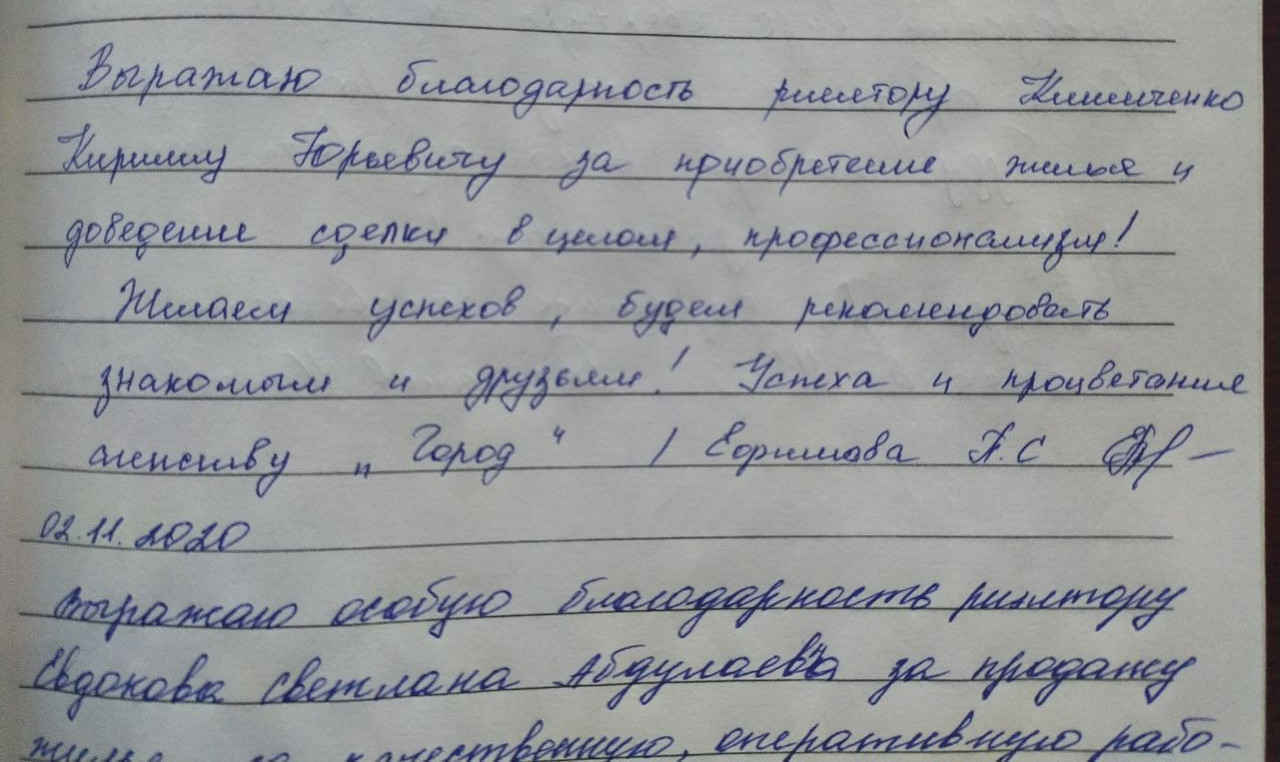 Выражаю благодарность риелтору Клименченко
Кириллу Юрьевичу за приобретение жилья и
доведение сделки в целом, профессионализм!
Желаем успехов, будем рекомендовать
знакомым и друзьям! Успеха и процветания
агенству „Город“ / А.С
02.11.2020
Выражаю особую благодарность риэлтору
Евдокова Светлана Абдулаевна за продажу
жилья, за качественную, оперативную рабо-